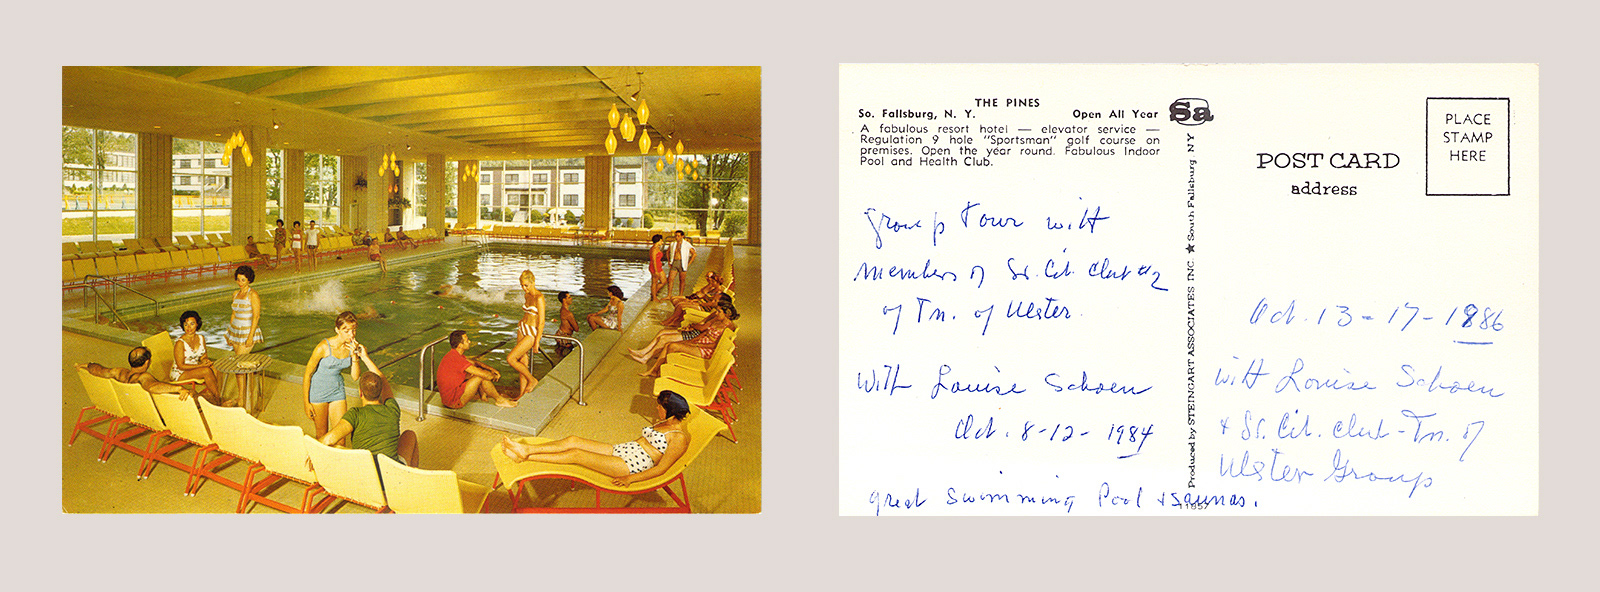 THE PINES
So. Fallsburg, N. Y. Open All Year
A fabulous resort hotel — elevator service —
Regulation 9 hole "Sportsman" golf course on
premises. Open the year round. Fabulous Indoor
Pool and Health Club.
group tour with
members of Sr. Cit. Club #2
of Tn. of Ulster.
with Louise Schoen
Oct. 8-12- 1984
great swimming Pool & Saunas.
Sa
Produced by STEINGART ASSOCIATES INC. ★ South Fallsburg, N.Y.
11957
POST CARD
address
PLACE
STAMP
HERE
Oct. 13-17-1986
with Louise Schoen
& Sr. Cit. club-Tn. of
Ulster Group